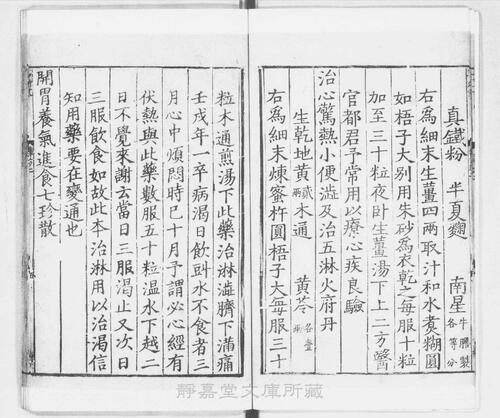 真鐵粉 半夏麴 南星牛膽製各等分
右爲細末生薑四兩取汁和水煑糊圓
如梧子大别用朱砂爲衣乾之每服十粒
加至三十粒夜卧生薑湯下上二方醫
官都君予常用以療心疾良驗
治心驚熱小便澁及治五淋火府丹
生乾地黄貳兩木通 黄芩各壹兩
右爲細末煉蜜杵圓梧子大每服三十
粒木通煎湯下此藥治淋澁臍下滿痛
壬戌年一卒病渴日飲斛水不食者三
月心中煩悶時已十月予謂必心經有
伏熱與此藥數服五十粒温水下越二
日不覺來謝云當日三服渴止又次日
三服飲食如故此本治淋用以治渴信
知用藥要在變通也
開胃養氣進食七珍散
靜嘉堂文庫所藏